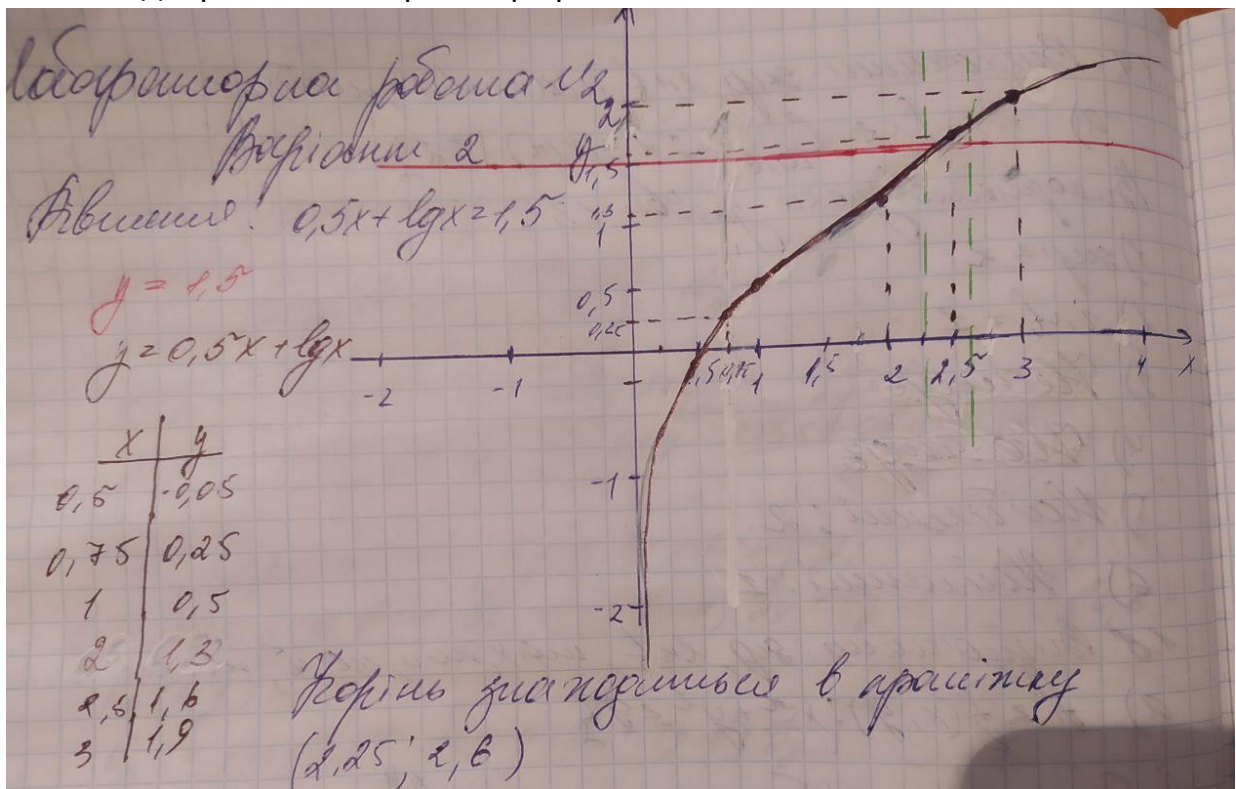 Лабораторна робота №2
Варіант 2
Рівняння: 0,5x + lgx = 1,5
y = 1,5
y = 0,5x + lgx
x y
0,5 -0,05
0,75 0,25
1 0,5
2 1,3
2,5 1,6
3 1,9
2
y
1,5
1,3
1
0,5
0,25
-2 -1 0,5 0,75 1 1,5 2 2,5 3 4 x
-1
-2
Корінь знаходиться в проміжку
(2,25; 2,6)